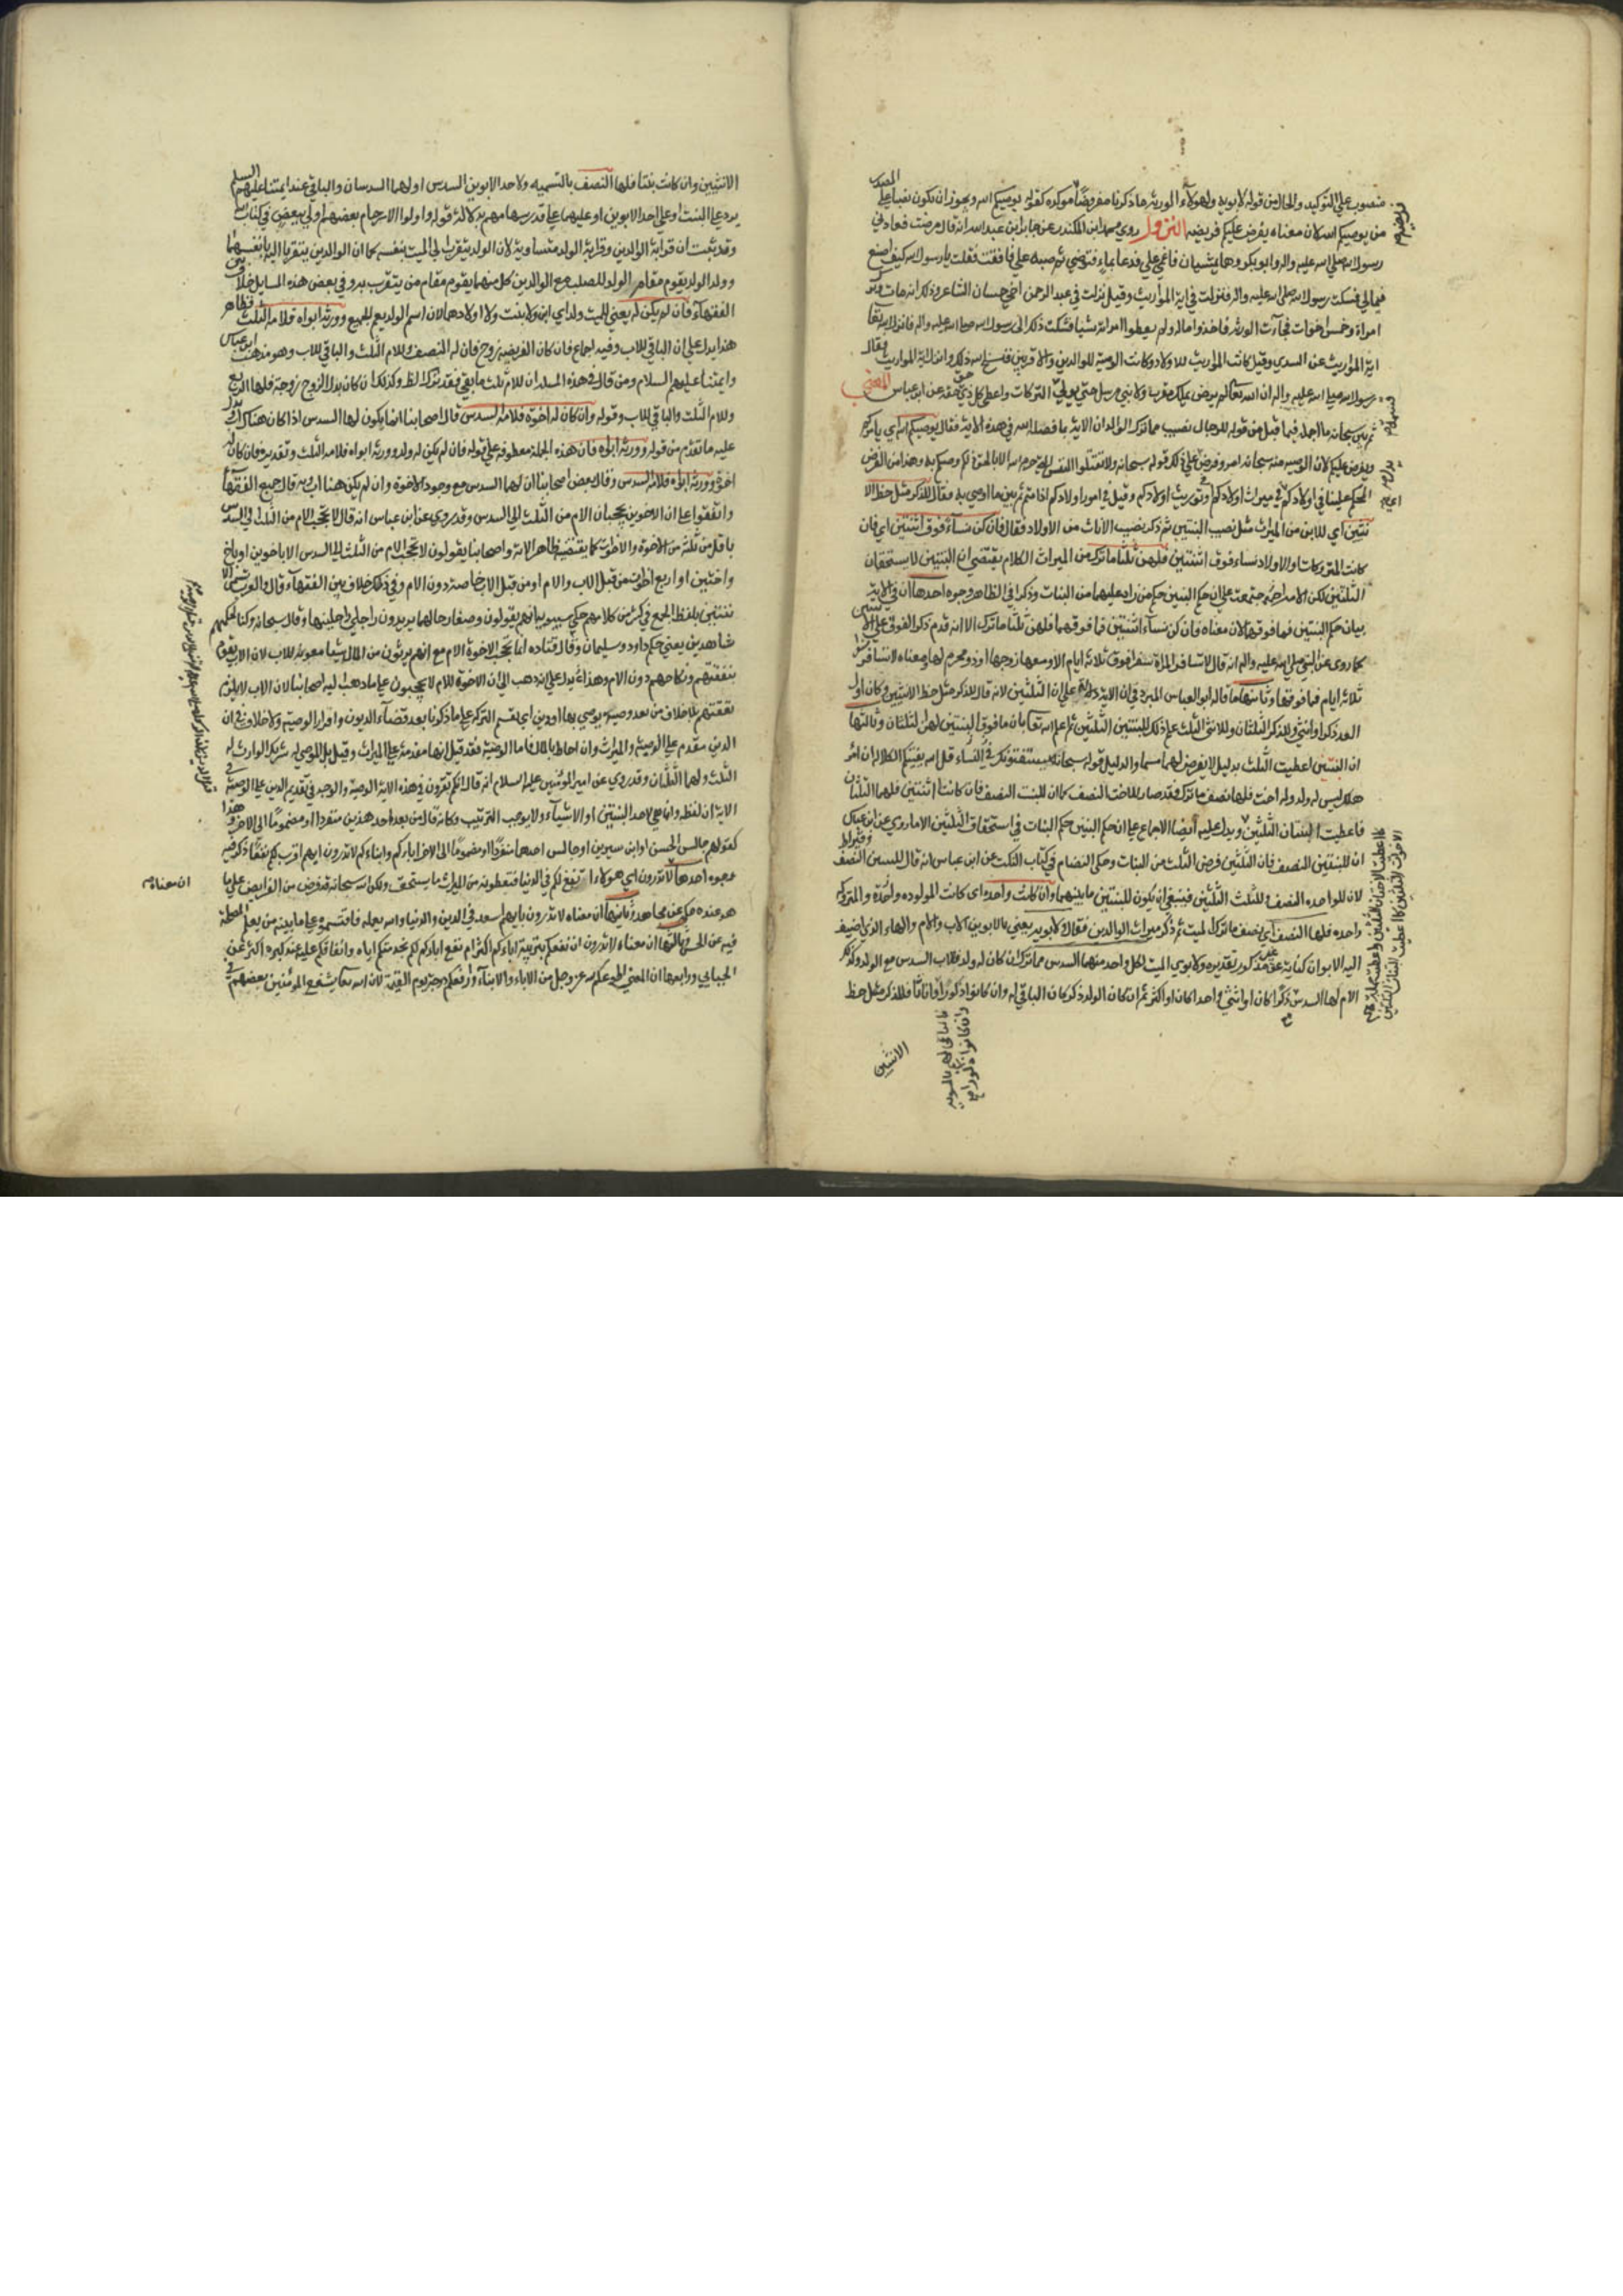 منصوب علي التوكيد والحال من قوله لابويه ولهولاء الورثة ما ذكرنا مفروضا فريضة موكده كقوله يوصيكم الله ويجوز ان يكون نصبا علي المصدر
من يوصيكم الله لان معناه يفرض عليكم فريضه النزول روي محمد ابن المكندر عن جابر ابن عبد الله انه قال مرضت فعادني
رسول الله صلي الله عليه واله وابو بكر وهما يمشيان فاغمي علي فدعا بماء فتوضي ثم صبه علي فافقت فقلت يا رسول الله كيف اصنع
في مالي فسكت رسول الله صلي الله عليه واله فنزلت في اية المواريث وقيل نزلت في عبد الرحمن اخي حسان الشاعر وذلك انه مات وترك
امراة وخمس اخوات فجاءت الورثة فاخذوا ماله ولم يعطوا امراته شيا فشكت ذلك الي رسول الله صلي الله عليه واله فانزل الله تعا
اية المواريث عن السدي وقيل كانت المواريث للاولاد وكانت الوصية للوالدين والاقربين فنسخ الله ذلك وانزل اية المواريث فقال
رسول الله صلي الله عليه واله ان الله تعالي لم يرض بملك مقرب ولا نبي مرسل حتي تولي التركات واعطي كل ذي حق حقه عن ابن عباس المعني
ثم بين سبحانه ما اجمله فيما قبل من قوله للرجال نصيب مما ترك الوالدان الاية بما فصله الله في هذه الاية فقال يوصيكم الله اي يامركم
ويفرض عليكم لان الوصية منه سبحانه امر وفرض يدل علي ذلك قوله سبحانه ولا تقتلوا النفس التي حرم الله الا بالحق ذلكم وصيكم به وهذا من الفرض
المحكم علينا في اولادكم اي في ميراث اولادكم او في توريث اولادكم وقيل في امور اولادكم اذا متم ثم بين ما اوصي به فقال للذكر مثل حظ الا
نثيين اي للابن من الميراث مثل نصيب البنتين ثم ذكر نصيب الاناث من الاولاد فقال فان كن نساء فوق اثنتين اي فان
كانت المتروكات او الاولاد نساء فوق اثنتين فلهن ثلثا ما ترك من الميراث الكلام يقتضي ان البنتين لا يستحقان
الثلثين لكن الامة اجتمعت علي ان حكم البنتين حكم من زاد عليهما من البنات وذكر في الظاهر وجوه احدها ان في الاية
بيان حكم البنتين فما فوقهما لان معناه وان كن نساء اثنتين فما فوقهما فلهن ثلثا ما ترك الا انه قدم ذكر الفوق علي الاثنتين
كما روي عن النبي صلي الله عليه واله انه قال لا تسافر المراة سفرا فوق ثلاثة ايام الا ومعها زوجها او ذو محرم لها ومعناه لا تسافر سفرا
ثلاثة ايام فما فوقها وثانيها ما قاله ابو العباس المبرد في ان الاية دلالة علي ان الثلثين لانه قال للذكر مثل حظ الانثيين وكان اول
العدد ذكرا وانثي وللذكر الثلثان وللانثي الثلث علم ذلك للبنتين الثلثين ثم اعلم الله تعا بان ما فوق البنتين لهن الثلثان وثالثها
ان البنتين اعطيت الثلث بدليل لا يفرض لهما مسما والدليل قوله سبحانه يستفتونك في النساء قل الله يفتيكم الكلالة ان امرؤ
هلك ليس له ولد وله اخت فلها نصف ما ترك فقد صار للاخت النصف كما ان للبنت النصف فان كانتا اثنتين فلهما الثلثان
فاعطيت البنتان الثلثين ويدل عليه ايضا الاجماع علي ان حكم البنتين حكم البنات في استحقاق الثلثين الا ما روي عن ابن عباس
ان للبنتين النصف فان الثلثين فرض الثلث من البنات وحكي النضام في كتاب النكت عن ابن عباس انه قال للبنتين النصف وقيراط
لان للواحده النصف وللثلث الثلثين فينبغي ان يكون للبنتين ما بينهما وان كانت واحده اي كانت المولوده واحده والمتروكه
واحده فلها النصف اي نصف ما ترك الميت ثم ذكر ميراث الوالدين فقال ولابويه يعني بالابوين الاب والام والهاء الذي اضيف
اليه الابوان كناية عن غير مذكور تقديره ولابوي الميت لكل واحد منهما السدس مما ترك ان كان له ولد فللاب السدس مع الولد وكذلك
الام لها السدس ذكرا كان او انثي واحدا كان او اكثر ثم ان كان الولد ذكر كان الباقي له وان كانوا ذكورا واناثا فللذكر مثل حظ
كما اعطيت الاختان الثلثين واعطيت جملة
الاخوات الثلثين كما اعطيت البنات الثلثين
وان كانوا ذكورا
فالباقي لهم بالسويه
الانثيين
الانثيين وان كانت بنتا فلها النصف بالتسميه ولاحد الابوين السدس او لهما السدسان والباقي عند ايمتنا عليهم السلم
يرد علي البنت او علي احد الابوين او عليهما علي قدر سهامهم بدلالة قوله واولوا الارحام بعضهم اولي ببعض في كتاب الله
وقد ثبت ان قرابة الوالدين وقرابة الولد متساوية لان الولد يتقرب الي الميت بنفسه كما ان الوالدين يتقربا اليه بانفسهما
وولد الولد يقوم مقام الولد للصلب مع الوالدين كل منهما يقوم مقام من يتقرب به وفي بعض هذه المسايل خلاف بين
الفقهاء فان لم يكن له يعني للميت ولد اي ابن ولا بنت ولا اولادهما لان اسم الولد يعم الجميع وورثه ابواه فلامه الثلث وظاهر
هذا يدل علي ان الباقي للاب وفيه اجماع فان كان الفريضه زوج فان له النصف وللام الثلث والباقي للاب وهو مذهب ابن عباس
وايمتنا عليهم السلام ومن قال في هذه المسله ان للام ثلث ما بقي فقد ترك الظ وكذلك ان كان بدل الزوج زوجة فلها الربع
وللام الثلث والباقي للاب وقوله وان كان له اخوة فلامه السدس قال اصحابنا انما يكون لها السدس اذا كان هناك اب ويدل
عليه ما تقدم من قوله وورثه ابواه فان هذه الجملة معطوفه علي قوله فان لم يكن له ولد وورثه ابواه فلامه الثلث وتقديره فان كان له
اخوة وورثه ابواه فلامه السدس وقال بعض اصحابنا ان لهما السدس مع وجود الاخوة وان لم يكن هنا اب وبه قال جميع الفقهاء
واتفقوا علي ان الاخوين يحجبان الام من الثلث الي السدس وقد روي عن ابن عباس انه قال لا يحجب الام من الثلث الي السدس
باقل من ثلثة من الاخوة والاخوات كما يقتضيه ظاهر الاية واصحابنا يقولون لا يحجب الام من الثلث الي السدس الا باخوين او باخ
واختين او اربع اخوات من قبل الاب والام او من قبل الاب خاصة دون الام وفي ذلك خلاف بين الفقهاء قالوا والعرب تسمي الا
ثنتين بلفظ الجمع في كثير من كلامهم حكي سيبويه انهم يقولون وضعا رحالهما يريدون راحلتي راحلتيهما وقال سبحانه وكنا لحكمهم
شاهدين يعني حكم داود وسليمان وقال قتاده انما يحجب الاخوة الام مع انهم يرثون من المال شيا معونة للاب لان الاب يقوم
بنفقتهم ونكاحهم دون الام وهذا يدل علي انه ذهب الي ان الاخوة للام لا يحجبون علي ما ذهب اليه اصحابنا لان الاب لا يلزم
نفقتهم بلا خلاف من بعد وصيه يوصي بها او دين اي يقسم التركه علي ما ذكرنا بعد قضاء الديون وافراز الوصيه ولا خلاف في ان
الدين مقدم علي الوصيه والميراث وان احاط بالمال فاما الوصيه فقد قيل انها مقدمة علي الميراث وقيل بل الموصي له شريك الوارث له
الثلث ولهما الثلثان وقد روي عن امير المومنين عليه السلام انه قال انكم تقرون في هذه الاية الوصيه والوجه في تقديم الدين علي الوصيه في
الاية ان لفظه او انما هي لاحد الشيئين او الاشياء ولا يوجب الترتيب وكانه قال من بعد احد هذين منفردا او مضموما الي الاخر وهذا
كقولهم جالس الحسن او ابن سيرين اي جالس احدهما منفردا او مضموما الي الاخر اباوكم وابناوكم لا تدرون ايهم اقرب لكم نفعا ذكر فيه
وجوه احدها لا تدرون اي هولاء انفع لكم في الدنيا فتعطونه من الميراث ما يستحق ولكن الله سبحانه قد فرض من الفرايض علي ما
هو عنده حكم عن مجاهد وثانيها ان معناه لا تدرون بايهم اسعد في الدين والدنيا والله يعلمه فاقتسموه علي ما بينه من يعلم المصلحة
فيه عن الحسن وثالثها ان معناه لا تدرون ان نفعكم بتربية اباءكم اكثر ام نفع اباءكم لكم بخدمتكم اياه وانفاقكم عليه عند كبره اكثر عن
الجبايي ورابعها ان المعني اطوعكم لله عز وجل من الاباء والابناء وارفعكم درجة يوم القيمة لان الله تعا يشفع المومنين بعضهم في
ان معناه